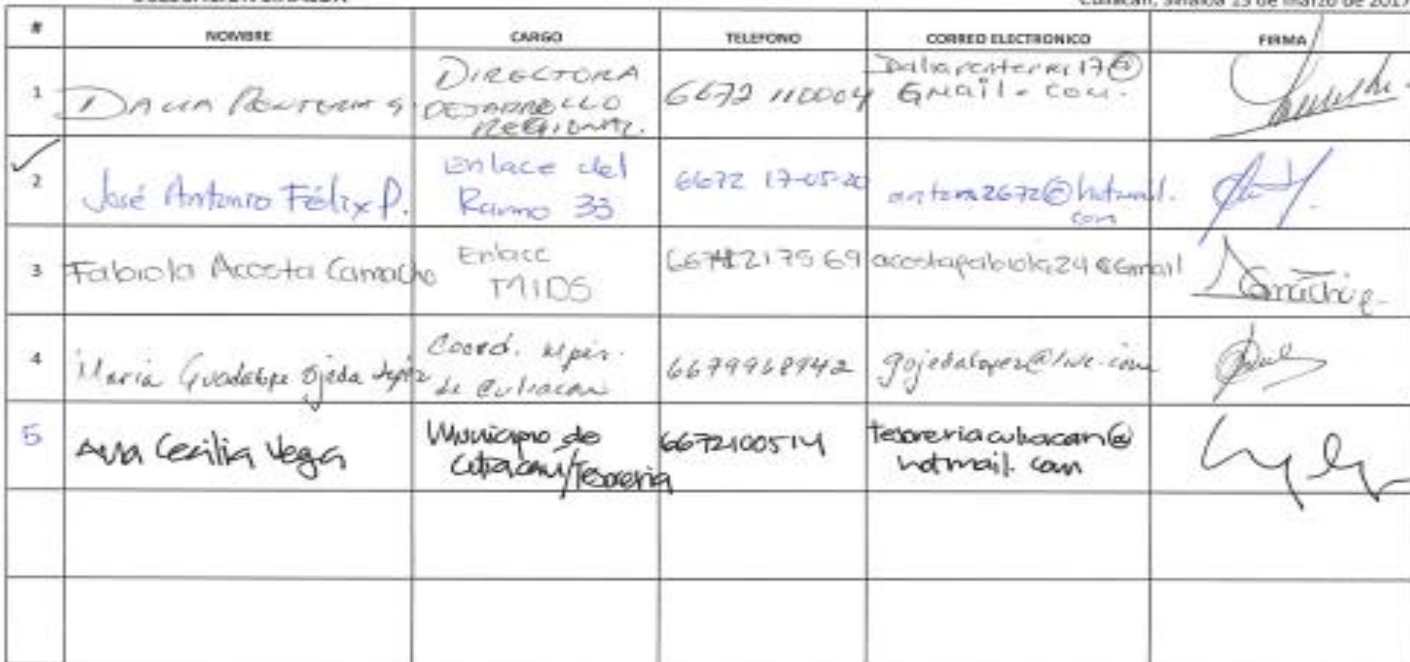 Culiacán, Sinaloa 13 de marzo de 2017
# NOMBRE CARGO TELEFONO CORREO ELECTRONICO FIRMA
1 DALIA RENTERIA G. DIRECTORA DESARROLLO REGIONAL. 6672 110004 @ GMail.com.
2 José Antonio Félix P. Enlace del Ramo 33 6672 17-05-20 antera2672@hotmail.com
3 Fabiola Acosta Camacho Enlace MIDS acostafabiola24@Gmail
4 Maria Guadalupe Ojeda López Coord. de Culiacan 6679968942 gojedalopez@live.com
5 Ana Cecilia Vega Municipio de Culiacan/Tesoreria 6672100514 tesoreriaculiacan@hotmail.com